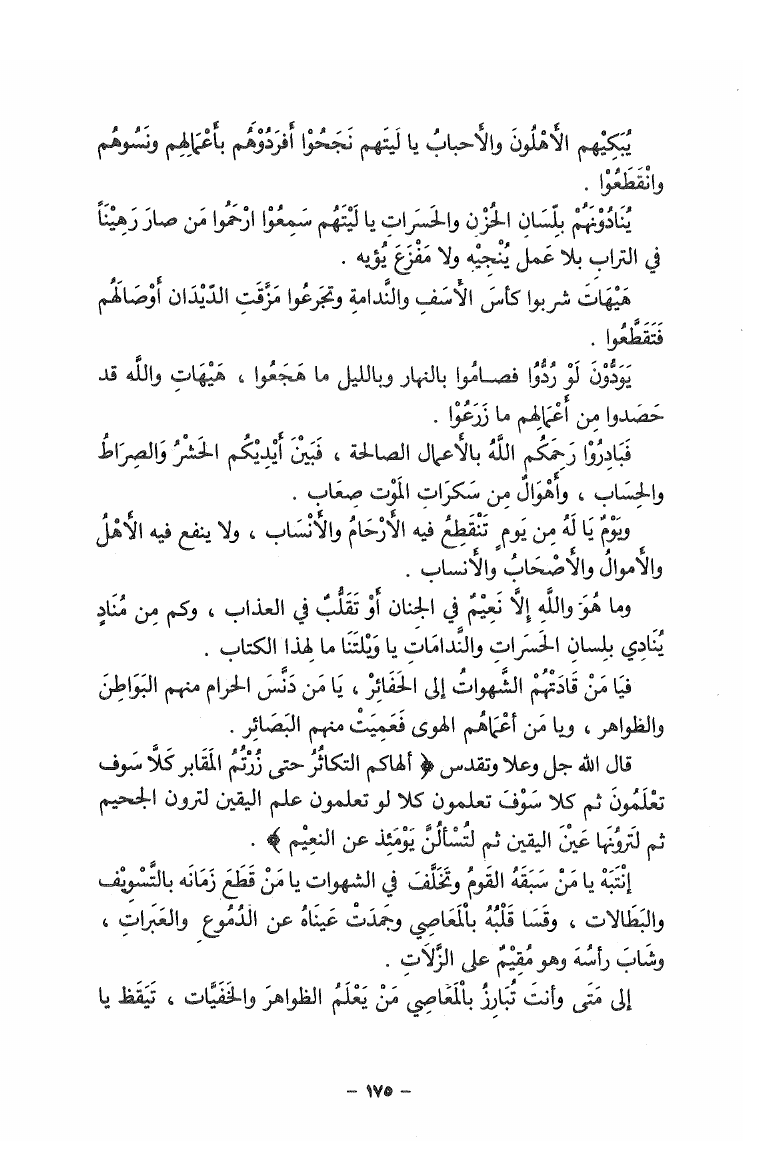 يُبَكِيْهم الأَهْلُونَ والأَحبابُ يا لَيتَهم نَجَحُوْا أَفرَدُوْهُم بأَعْمَالِهِم ونَسُوهُم
وانْقَطَعُوْا .
يُنَادُوْنَهُمْ بلّسَانِ الحُزْنِ والحَسَراتِ يا لَيْتَهُم سَمِعُوْا ارْحَمُوا مَن صارَ رَهِيْنَاً
في الترابِ بلا عَمل يُنْجِيْهِ ولا مَفْزَعَ يُؤيه .
هَيْهَاتَ شربوا كأسَ الأَسَفِ والنَّدامةِ وتجَرعُوا مَزَّقَتِ الدّيْدَان أَوْصَالَهُم
فَتَقَطَّعُوا .
يَوَدُّوْنَ لَوْ رُدُّوُا فصـامُوا بالنهار وبالليل ما هَجَعُوا ، هَيْهَاتِ واللَّه قد
حَصَدوا مِن أَعْمَالِهم ما زَرَعُوْا .
فَبَادِرُوْا رَحِمَكُم اللَّهُ بالأَعمال الصالحة ، فَبَيْنَ أَيْدِيْكُم الحَشْرُ وَالصِرَاطُ
والحِسَاب ، وأَهْوَالٌ مِن سَكرَاتِ المَوْت صِعَاب .
ويَوْمٌ يَا لَهُ مِن يَومٍ تَنْقَطِعُ فيه الأَرْحَامُ والأَنْسَاب ، ولا ينفع فيه الأَهْلُ
والأَموالُ والأَصْحَابُ والأَنساب .
وما هُوَ واللَّهِ إِلَّا نَعِيْمٌ في الجِنان أَوْ تَقَلُّبٌ في العذاب ، وكم مِن مُنَادٍ
يُنَادِي بلِسانِ الحَسَراتِ والنَّدامَاتِ يا وَيْلتَنَا ما لِهذا الكتاب .
فيَا مَنْ قَادَتْهُمْ الشَّهواتُ إلى الحَفَائِرْ ، يَا مَن دَنَّسَ الحرام منهم البَوَاطِنَ
والظواهر ، ويا مَن أعْمَاهُم الهوى فَعَمِيَتْ منهم البَصَائِر .
قال الله جل وعلا وتقدس ﴿ ألهاكم التكاثُرُ حتى زُرْتُمُ المَقابر كَلَّا سَوف
تعْلَمُونَ ثم كلا سَوْفَ تعلمون كلا لو تعلمون علم اليقين لترون الجحيم
ثم لَتَروُنَها عَيْنَ اليقين ثم لتُسْألُنَّ يَوْمَئِذ عن النعِيْم ﴾ .
إنْتَبَهْ يا مَنْ سَبَقَهُ القَومُ وتَخَلَّفَ في الشهوات يا مَنْ قَطَعَ زَمَانَه بالتَّسوِيْف
والبَطَالات ، وقَسَا قَلْبُهُ بالْمَعاصِي وجمَدَتْ عَينَاهُ عن الدُمُوعِ والعَبَراتِ ،
وشَابَ رأسُهَ وهو مُقِيْمٌ على الزَّلَاتِ .
إلى مَتَى وأنتَ تُبَارِزُ بالْمَعَاصِي مَنْ يَعْلَمُ الظواهرَ والخَفيَّات ، تَيَقَظ يا
– ١٧٥ –